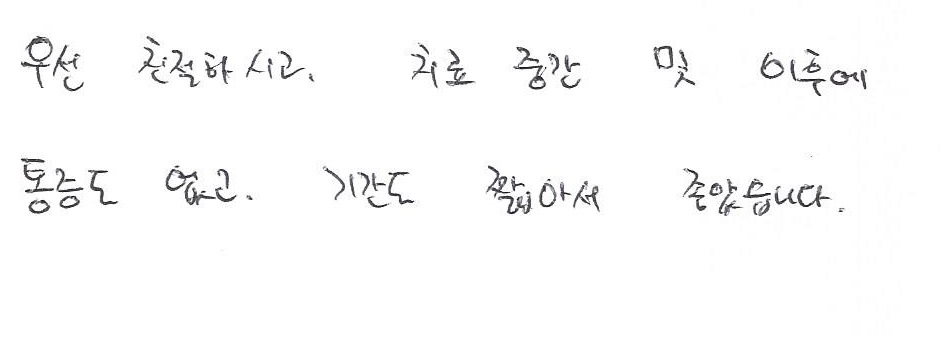 우선 친절하시고. 치료 중간 및 이후에
통증도 없고. 기간도 짧아서 좋았습니다.